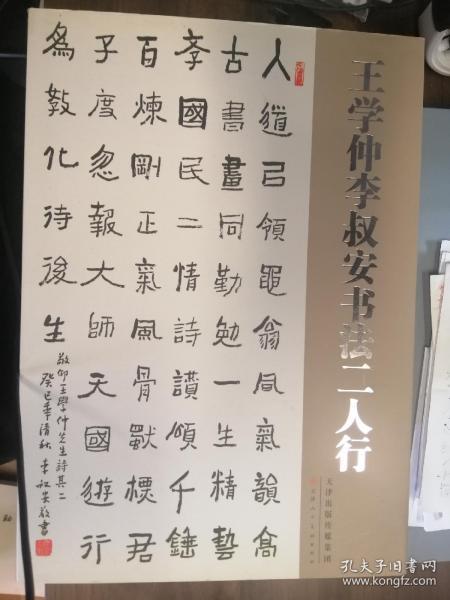 人道領黽翁凬氣韻高
古書畫同勤勉一生精藝
孝國民二情詩讃頌千錘
百煉剛正氣風骨標君
子度忽報大師天國遊行
為教化待後生
敬仰王學仲先生詩其二
癸巳年清秋 李叔安敬書
王学仲李叔安书法二人行
天津出版传媒集团
天津人民美术出版社
孔夫子旧书网
kongfz.com